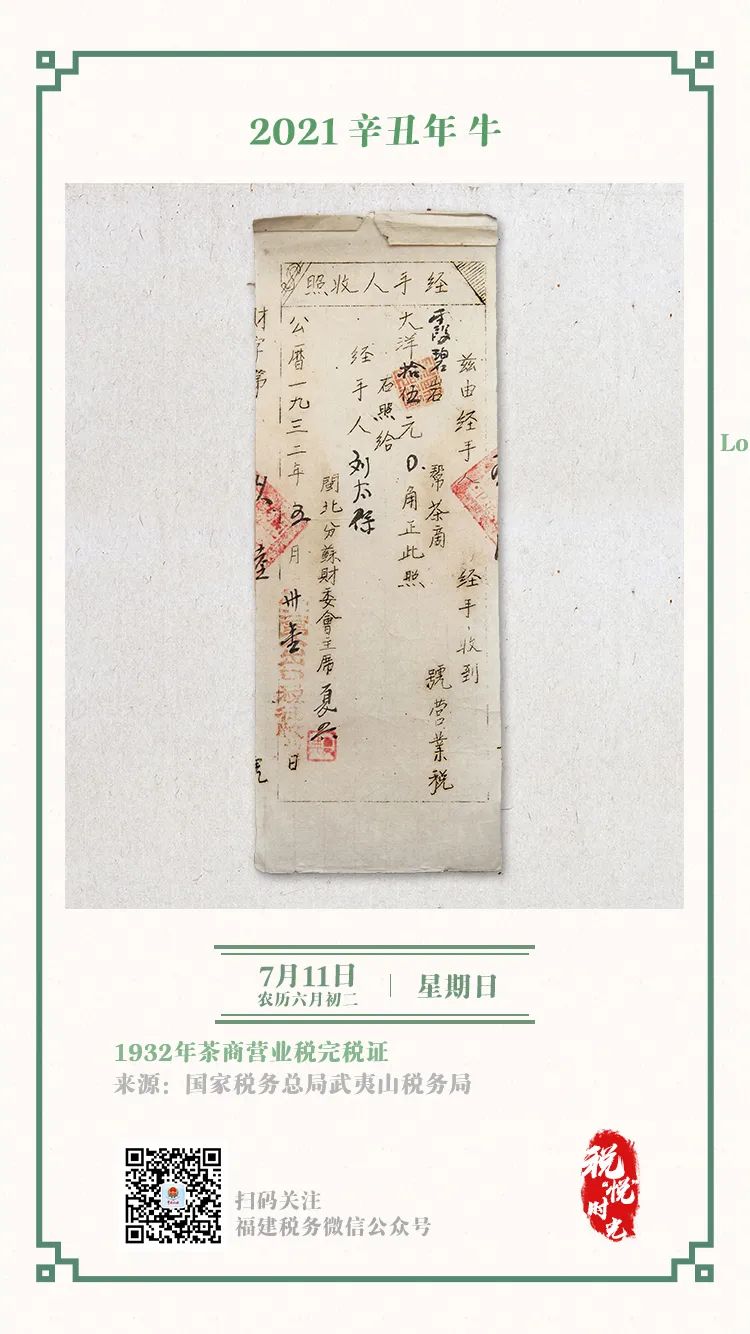 2021 辛丑年 牛
经手人收照
兹由经手人 经手收到
霞碧岩 帮茶商 號营業税
大洋拾伍元0角正此照
右照给
经手人 刘太保
閩北分蘇財委會主席 夏
公曆一九三二年五月卅壹日
财字第
Lo
7月11日
农历六月初二
星期日
1932年茶商营业税完税证
来源：国家税务总局武夷山税务局
扫码关注
福建税务微信公众号
税
"悦"
时
光